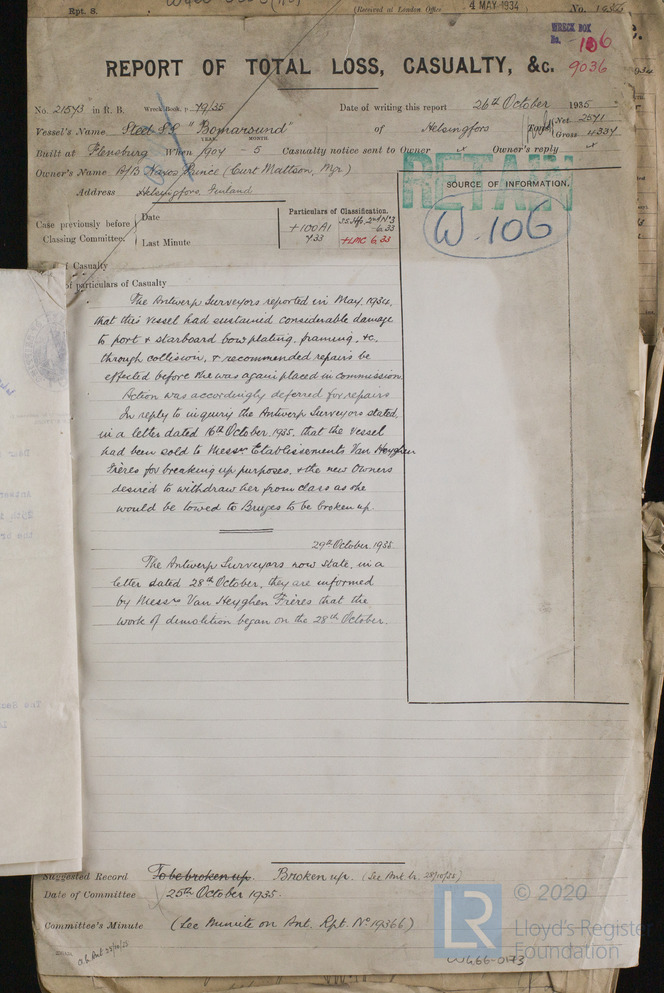 Rpt. S.
(Received at London Office 4 MAY 1934 No.
WRECK BOX
No. 106
9036
REPORT OF TOTAL LOSS, CASUALTY, &c.
No. 21543 in R. B. Wreck Book, p. 49/35 Date of writing this report 26th October 1935
Vessel's Name Steel SS "Bomarsund" of Helsingfors Tons Net 2541
Gross 4334
YEAR. MONTH.
Built at Flensburg When 1904 - 5 Casualty notice sent to Owner x Owner's reply x
Owner's Name A/B Naxos Prince (Curt Mattson, Mgr)
Address Helsingfors, Finland
RETAIN
SOURCE OF INFORMATION.
W. 106
Case previously before
Classing Committee.
Date
Last Minute
Particulars of Classification.
+100A1
4.33
6.33
+LMC 6.33
of Casualty
of particulars of Casualty
The Antwerp Surveyors reported in May, 1934,
that this vessel had sustained considerable damage
to port & starboard bow plating, framing, &c.
through collision, & recommended repairs be
effected before she was again placed in commission.
Action was accordingly deferred for repairs
In reply to inquiry the Antwerp Surveyors stated,
in a letter dated 16th October, 1935, that the vessel
had been sold to Messrs Etablissements Van Heyghen
Frères for breaking up purposes, & the new Owners
desired to withdraw her from class as she
would be towed to Bruges to be broken up.
29th October, 1935.
The Antwerp Surveyors now state, in a
letter dated 28th October, they are informed
by Messrs Van Heyghen Frères that the
work of demolition began on the 28th October.
Suggested Record To be broken up. Broken up. (See Ant. lr. 28/10/35)
Date of Committee 25th October 1935.
Committee's Minute (See Minute on Ant. Rpt. No 19366)
© 2020
LR
Lloyd's Register
Foundation
W466-0173